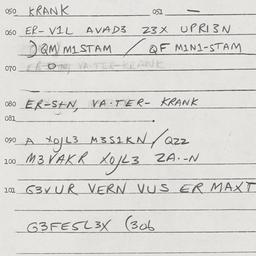 050 KRANK 051 —
060 ER-V1L AVAD3 Z3X UPRI3N
) QM M1STAM / QF M1N1-STAM
070
080 ER-S+N, VA·TER- KRANK
081
090 A XGJL3 M3S1KN / QZZ
100 M3VAKR XOJL3 ZA·-N
101 G3VUR VERN VUS ER MAXT
G3FE5L3X (30b